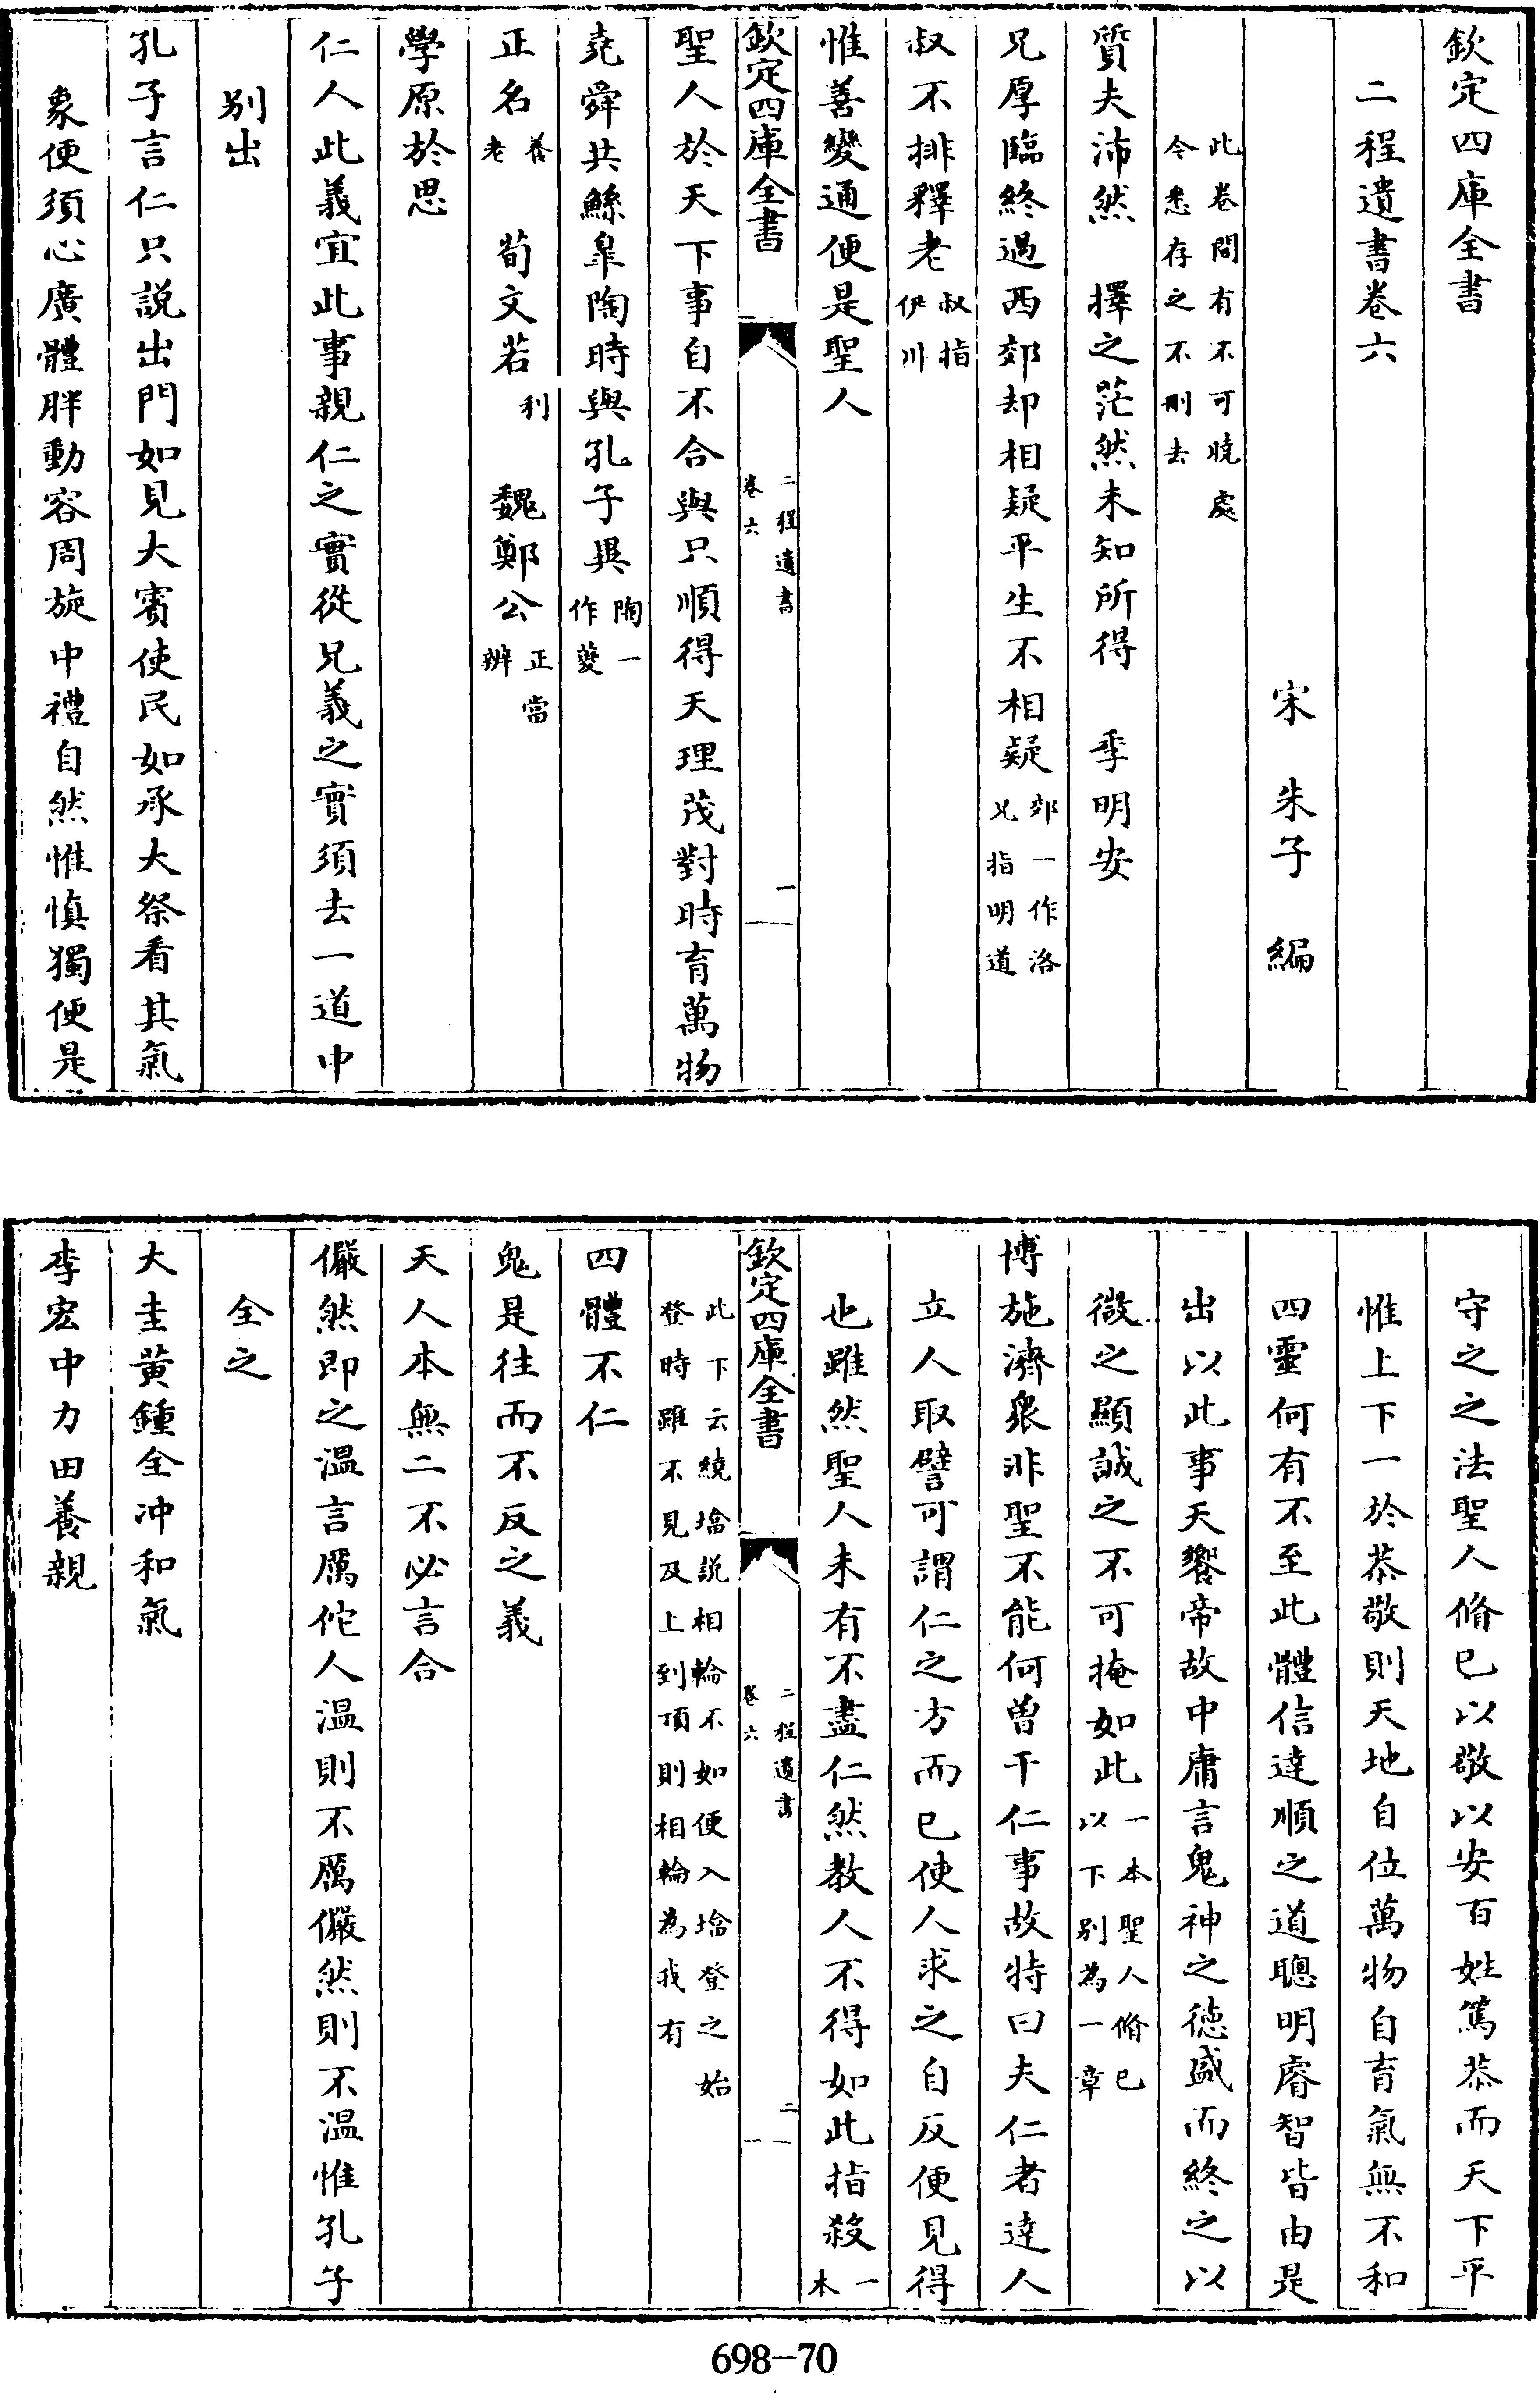 欽定四庫全書
二程遺書卷六
宋　朱子　編
此卷間有不可曉處
今悉存之不刪去
質夫沛然　擇之茫然未知所得　季明安
兄厚臨終過西郊却相疑平生不相疑郊一作洛
兄指明道
叔不排釋老叔指
伊川
惟善變通便是聖人
欽定四庫全書
二程遺書
卷六
一
聖人於天下事自不合與只順得天理茂對時育萬物
堯舜共鯀臯陶時與孔子異陶一
作夔
正名養
老　荀文若利　魏鄭公正當
辨
學原於思
仁人此義宜此事親仁之實從兄義之實須去一道中
別出
孔子言仁只說出門如見大賓使民如承大祭看其氣
象便須心廣體胖動容周旋中禮自然惟慎獨便是
守之之法聖人脩已以敬以安百姓篤恭而天下平
惟上下一於恭敬則天地自位萬物自育氣無不和
四靈何有不至此體信達順之道聰明睿智皆由是
出以此事天饗帝故中庸言鬼神之徳盛而終之以
微之顯誠之不可掩如此一本聖人脩已
以下別為一章
博施濟衆非聖不能何曽干仁事故特曰夫仁者達人
立人取譬可謂仁之方而已使人求之自反便見得
也雖然聖人未有不盡仁然教人不得如此指殺一
本
欽定四庫全書
二程遺書
卷六
二
此下云繞塔説相輪不如便入塔登之始
登時雖不見及上到頂則相輪為我有
四體不仁
鬼是往而不反之義
天人本無二不必言合
儼然即之温言厲佗人温則不厲儼然則不温惟孔子
全之
大圭黄鍾全冲和氣
李宏中力田養親
698-70